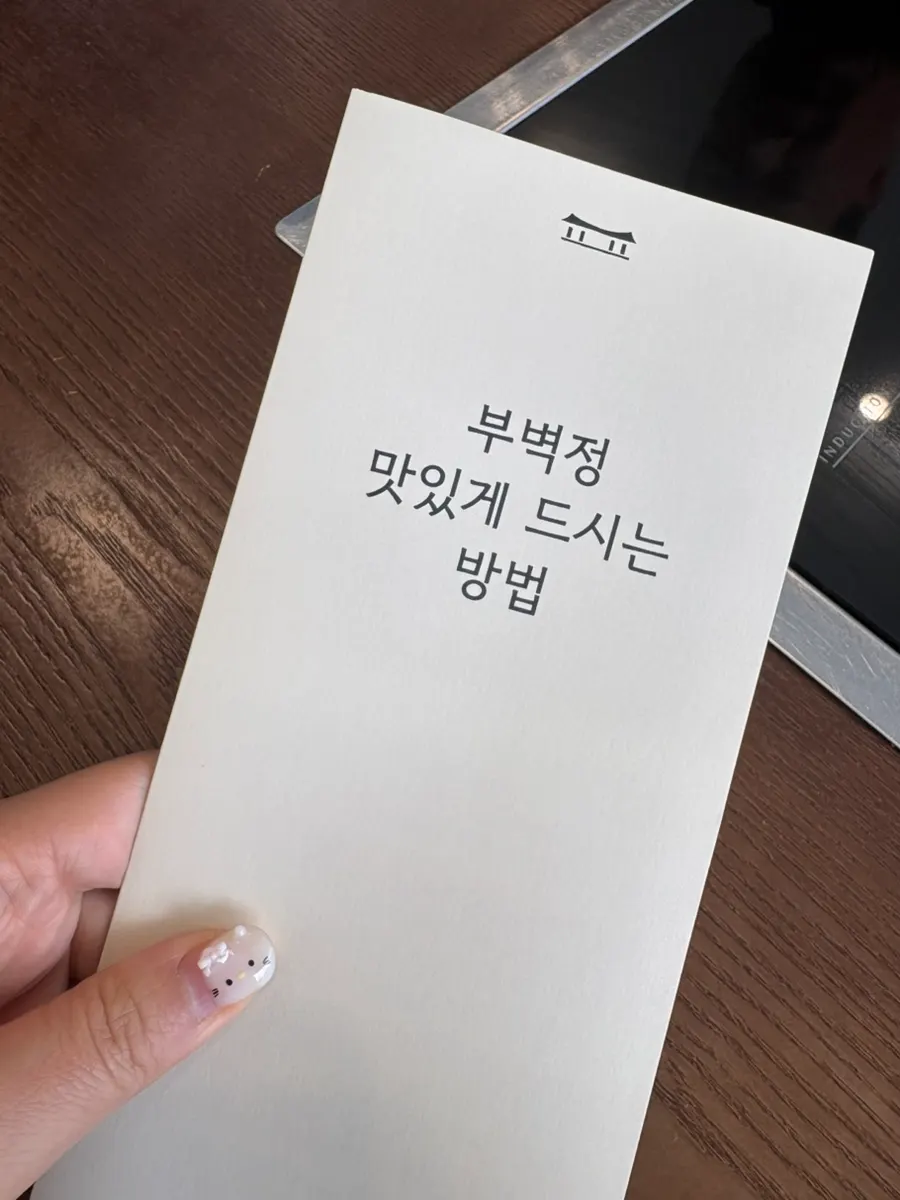 부벽정
맛있게 드시는
방법